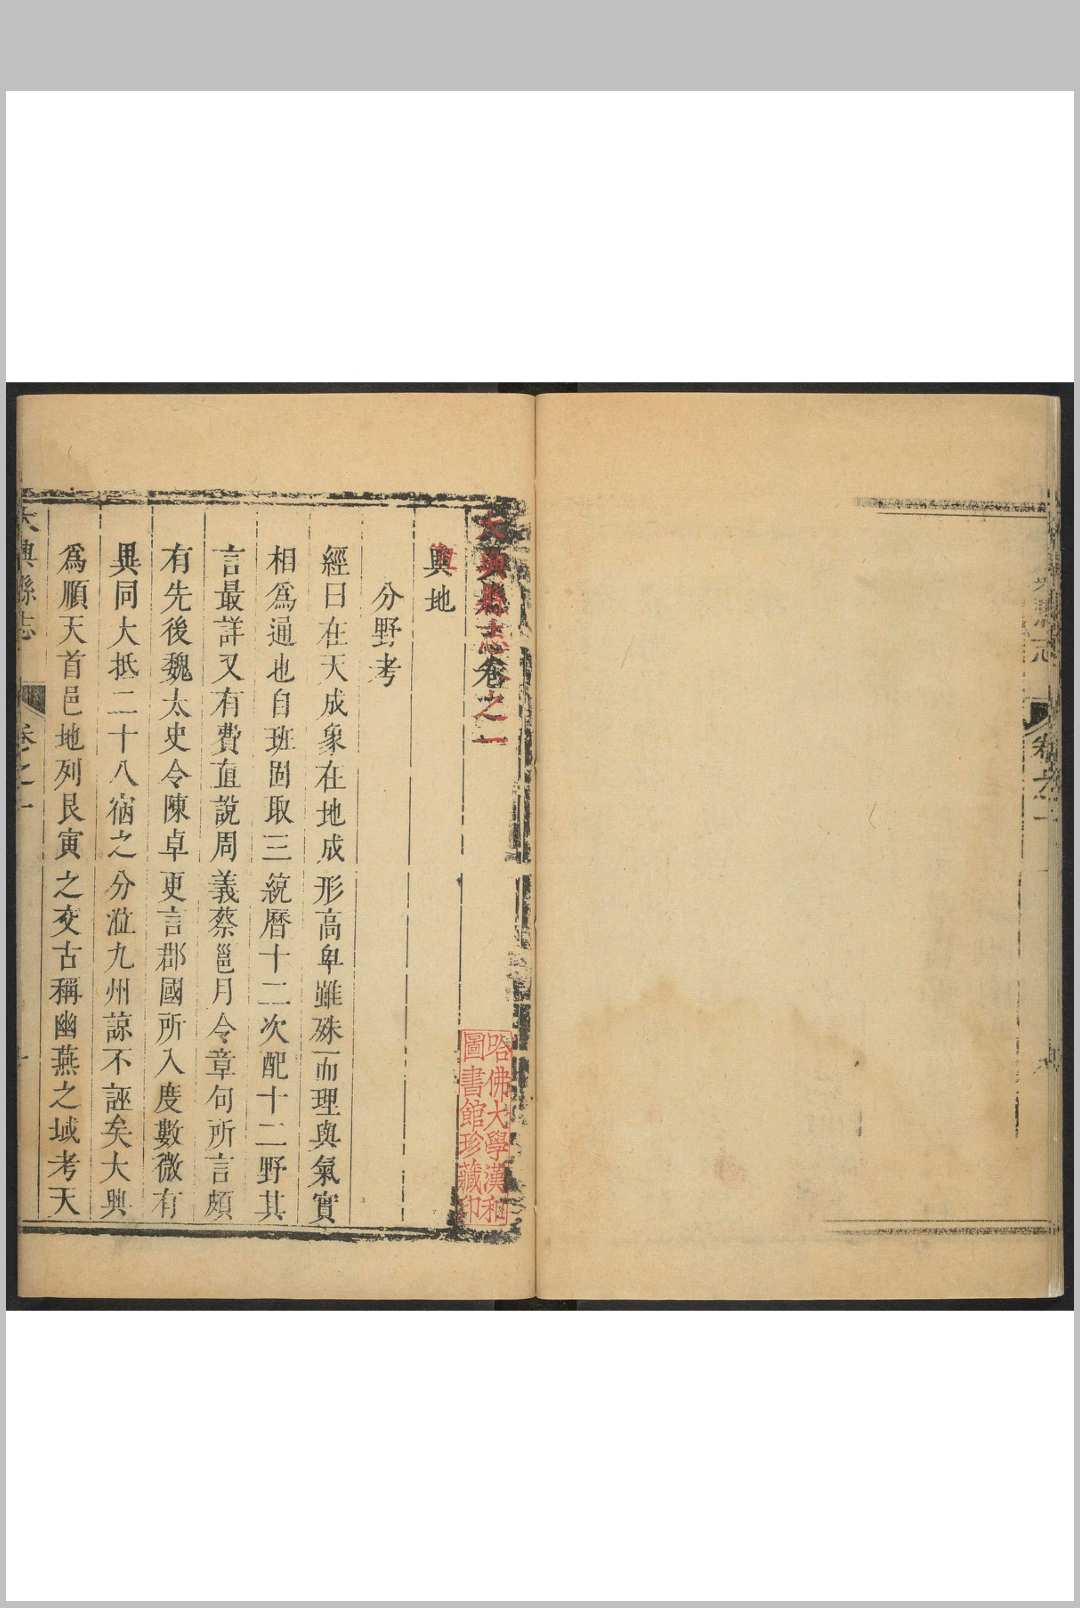 縣志
卷之一
大興縣志卷之一
輿地
分野考
經曰在天成象在地成形高卑雖殊而理與氣實
相爲通也自班固取三統曆十二次配十二野其
言最詳又有費直說周義蔡邕月令章句所言頗
有先後魏太史令陳卓更言郡國所入度數微有
異同大抵二十八宿之分涖九州諒不誣矣大興
爲順天首邑地列艮寅之交古稱幽燕之域考天
大興縣志
卷之一
哈佛大學漢和
圖書館珍藏印